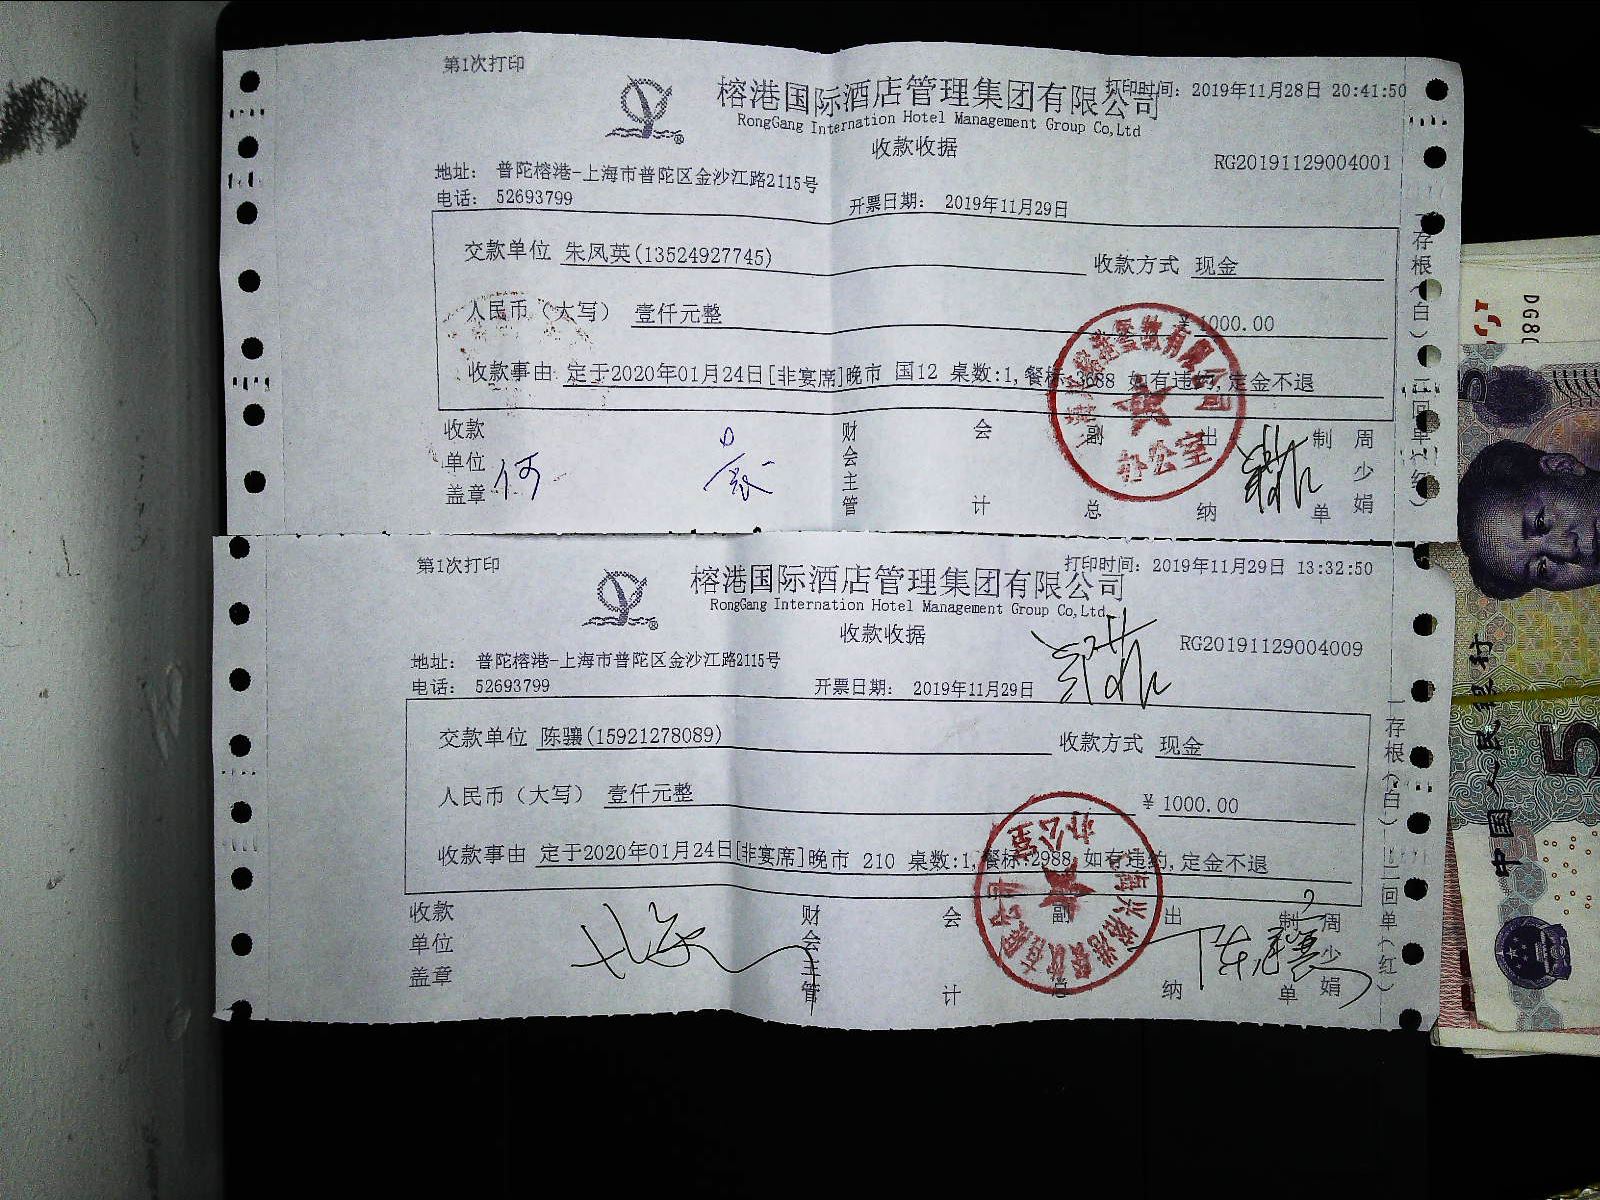 第1次打印
打印时间：2019年11月28日 20:41:50
榕港国际酒店管理集团有限公司
RongGang Internation Hotel Management Group Co,Ltd
收款收据
RG20191129004001
地址： 普陀榕港-上海市普陀区金沙江路2115号
电话： 52693799
开票日期： 2019年11月29日
交款单位 朱凤英(13524927745) 收款方式 现金
人民币（大写） 壹仟元整 ¥ 1000.00
收款事由 定于2020年01月24日[非宴席]晚市 国12 桌数:1,餐标:3688 如有违约,定金不退
收款单位盖章 何 财会主管 会计 副总 出纳 制单 周少娟
一存根(白)二回单(红)
办公室
第1次打印
打印时间：2019年11月29日 13:32:50
榕港国际酒店管理集团有限公司
RongGang Internation Hotel Management Group Co,Ltd
收款收据
RG20191129004009
地址： 普陀榕港-上海市普陀区金沙江路2115号
电话： 52693799
开票日期： 2019年11月29日
交款单位 陈骧(15921278089) 收款方式 现金
人民币（大写） 壹仟元整 ¥ 1000.00
收款事由 定于2020年01月24日[非宴席]晚市 210 桌数:1,餐标:2988 如有违约,定金不退
收款单位盖章 财会主管 会计 副总 出纳 制单 周少娟
一存根(白)二回单(红)
办公室
DG80
中国人民银行
5